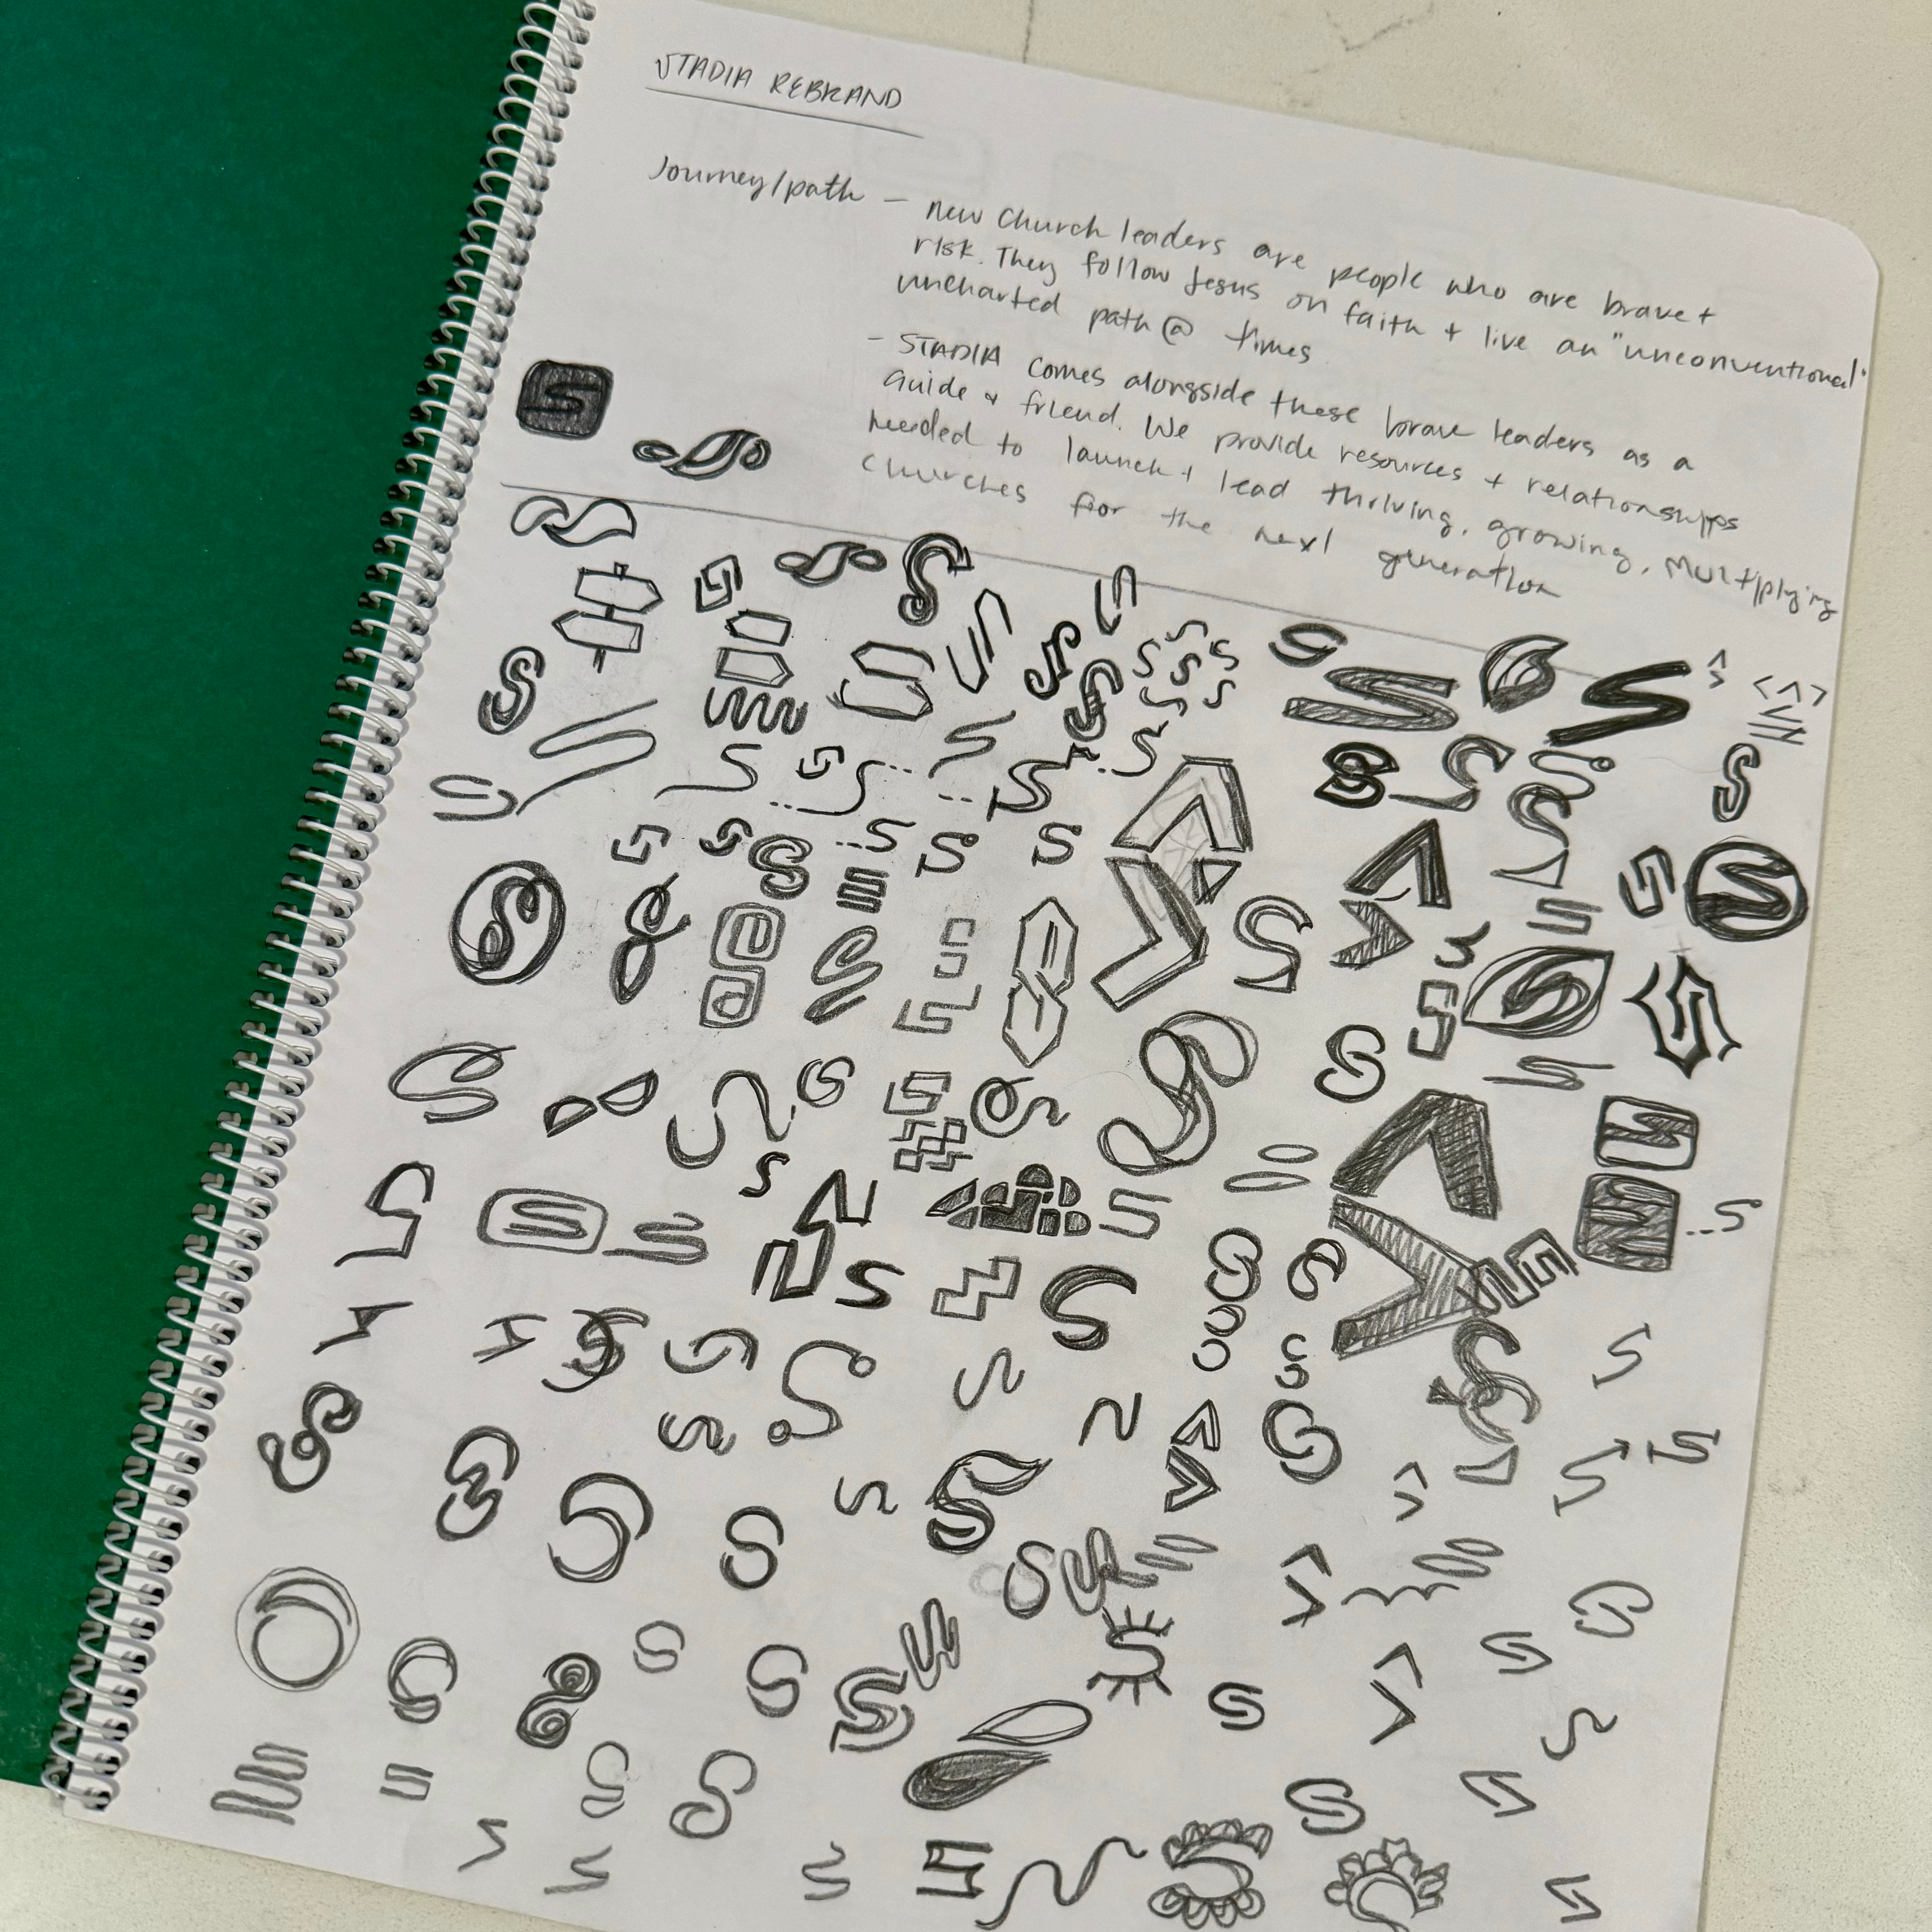 STADIA REBRAND
Journey/path - new church leaders are people who are brave +
risk. They follow Jesus on faith + live an "unconventional"
uncharted path @ times
- STADIA comes alongside these brave leaders as a
Guide & friend. We provide resources + relationships
needed to launch + lead thriving, growing, multiplying
churches for the next generation